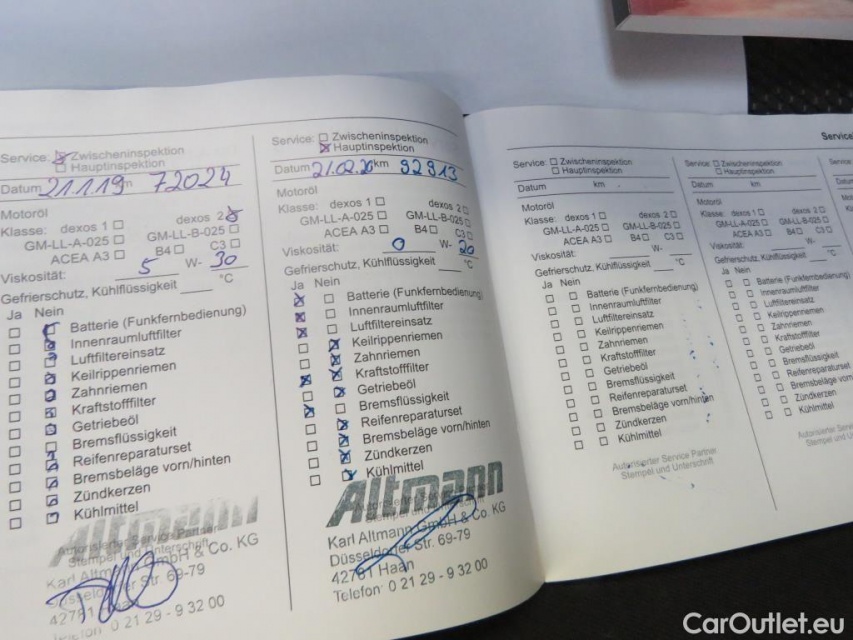 Service: Zwischeninspektion
Hauptinspektion
Datum 21.11.19 km 72024
Motoröl
Klasse: dexos 1 dexos 2
GM-LL-A-025 GM-LL-B-025
ACEA A3 B4 C3
Viskosität: 5 W- 30
Gefrierschutz, Kühlflüssigkeit °C
Ja Nein
Batterie (Funkfernbedienung)
Innenraumluftfilter
Luftfiltereinsatz
Keilrippenriemen
Zahnriemen
Kraftstofffilter
Getriebeöl
Bremsflüssigkeit
Reifenreparaturset
Bremsbeläge vorn/hinten
Zündkerzen
Kühlmittel
Altmann
Autorisierter Service Partner
Stempel und Unterschrift
Karl Altmann GmbH & Co. KG
Düsseldorfer Str. 69-79
42781 Haan
Telefon 0 21 29 - 9 32 00
Service: Zwischeninspektion
Hauptinspektion
Datum 21.02.20 km 92913
Motoröl
Klasse: dexos 1 dexos 2
GM-LL-A-025 GM-LL-B-025
ACEA A3 B4 C3
Viskosität: 0 W- 20
Gefrierschutz, Kühlflüssigkeit °C
Ja Nein
Batterie (Funkfernbedienung)
Innenraumluftfilter
Luftfiltereinsatz
Keilrippenriemen
Zahnriemen
Kraftstofffilter
Getriebeöl
Bremsflüssigkeit
Reifenreparaturset
Bremsbeläge vorn/hinten
Zündkerzen
Kühlmittel
Altmann
Karl Altmann GmbH & Co. KG
Düsseldorfer Str. 69-79
42781 Haan
Telefon 0 21 29 - 9 32 00
Service
Service: Zwischeninspektion
Hauptinspektion
Datum km
Motoröl
Klasse: dexos 1 dexos 2
GM-LL-A-025 GM-LL-B-025
ACEA A3 B4 C3
Viskosität: W-
Gefrierschutz, Kühlflüssigkeit °C
Ja Nein
Batterie (Funkfernbedienung)
Innenraumluftfilter
Luftfiltereinsatz
Keilrippenriemen
Zahnriemen
Kraftstofffilter
Getriebeöl
Bremsflüssigkeit
Reifenreparaturset
Bremsbeläge vorn/hinten
Zündkerzen
Kühlmittel
Autorisierter Service Partner
Stempel und Unterschrift
Service: Zwischeninspektion
Hauptinspektion
Datum km
Motoröl
Klasse: dexos 1 dexos 2
GM-LL-A-025 GM-LL-B-025
ACEA A3 B4 C3
Viskosität: W-
Gefrierschutz, Kühlflüssigkeit
Ja Nein
Batterie (Funkfernbedienung)
Innenraumluftfilter
Luftfiltereinsatz
Keilrippenriemen
Zahnriemen
Kraftstofffilter
Getriebeöl
Bremsflüssigkeit
Reifenreparaturset
Bremsbeläge
Zündkerzen
Kühlmittel
Autorisierter
Stempel und
CarOutlet.eu